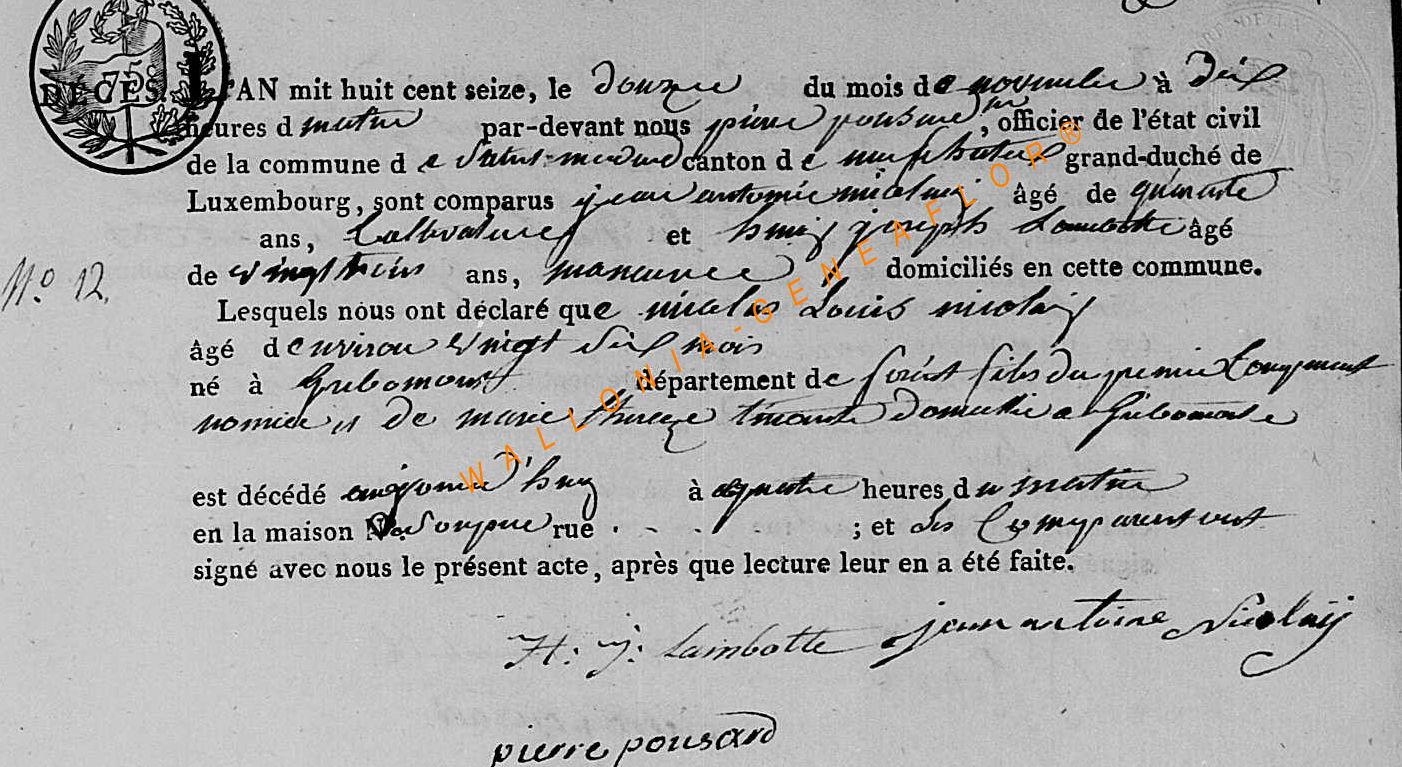 75
DÉCÈS. L'AN mil huit cent seize, le douze du mois de novembre à dix
heures d matin par-devant nous pierre pousard, officier de l'état civil
de la commune d e Saint-medard canton d e neufchateau grand-duché de
Luxembourg, sont comparus jean antoine nicolay âgé de quarante
ans, et henry joseph Lambotte âgé
N.º 12.
de vingt trois ans, manœuvre domiciliés en cette commune.
Lesquels nous ont déclaré que nicolas Louis nicolay
âgé d environ vingt six mois
né à Gribomont département de foret fils du premier Comparant
nommé et de marie therese domicilié a Gribomont
est décédé aujourd'huy à quatre heures du matin
en la maison No. rue . - . - . ; et les Comparent ont
signé avec nous le présent acte, après que lecture leur en a été faite.
H: j: Lambotte jean antoine Nicolaÿ
pierre pousard
WALLONIA-GENEAFLOR®